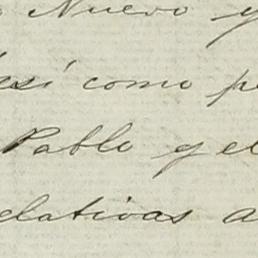 Nuevo y
así como pe
Pablo y el
relativas a